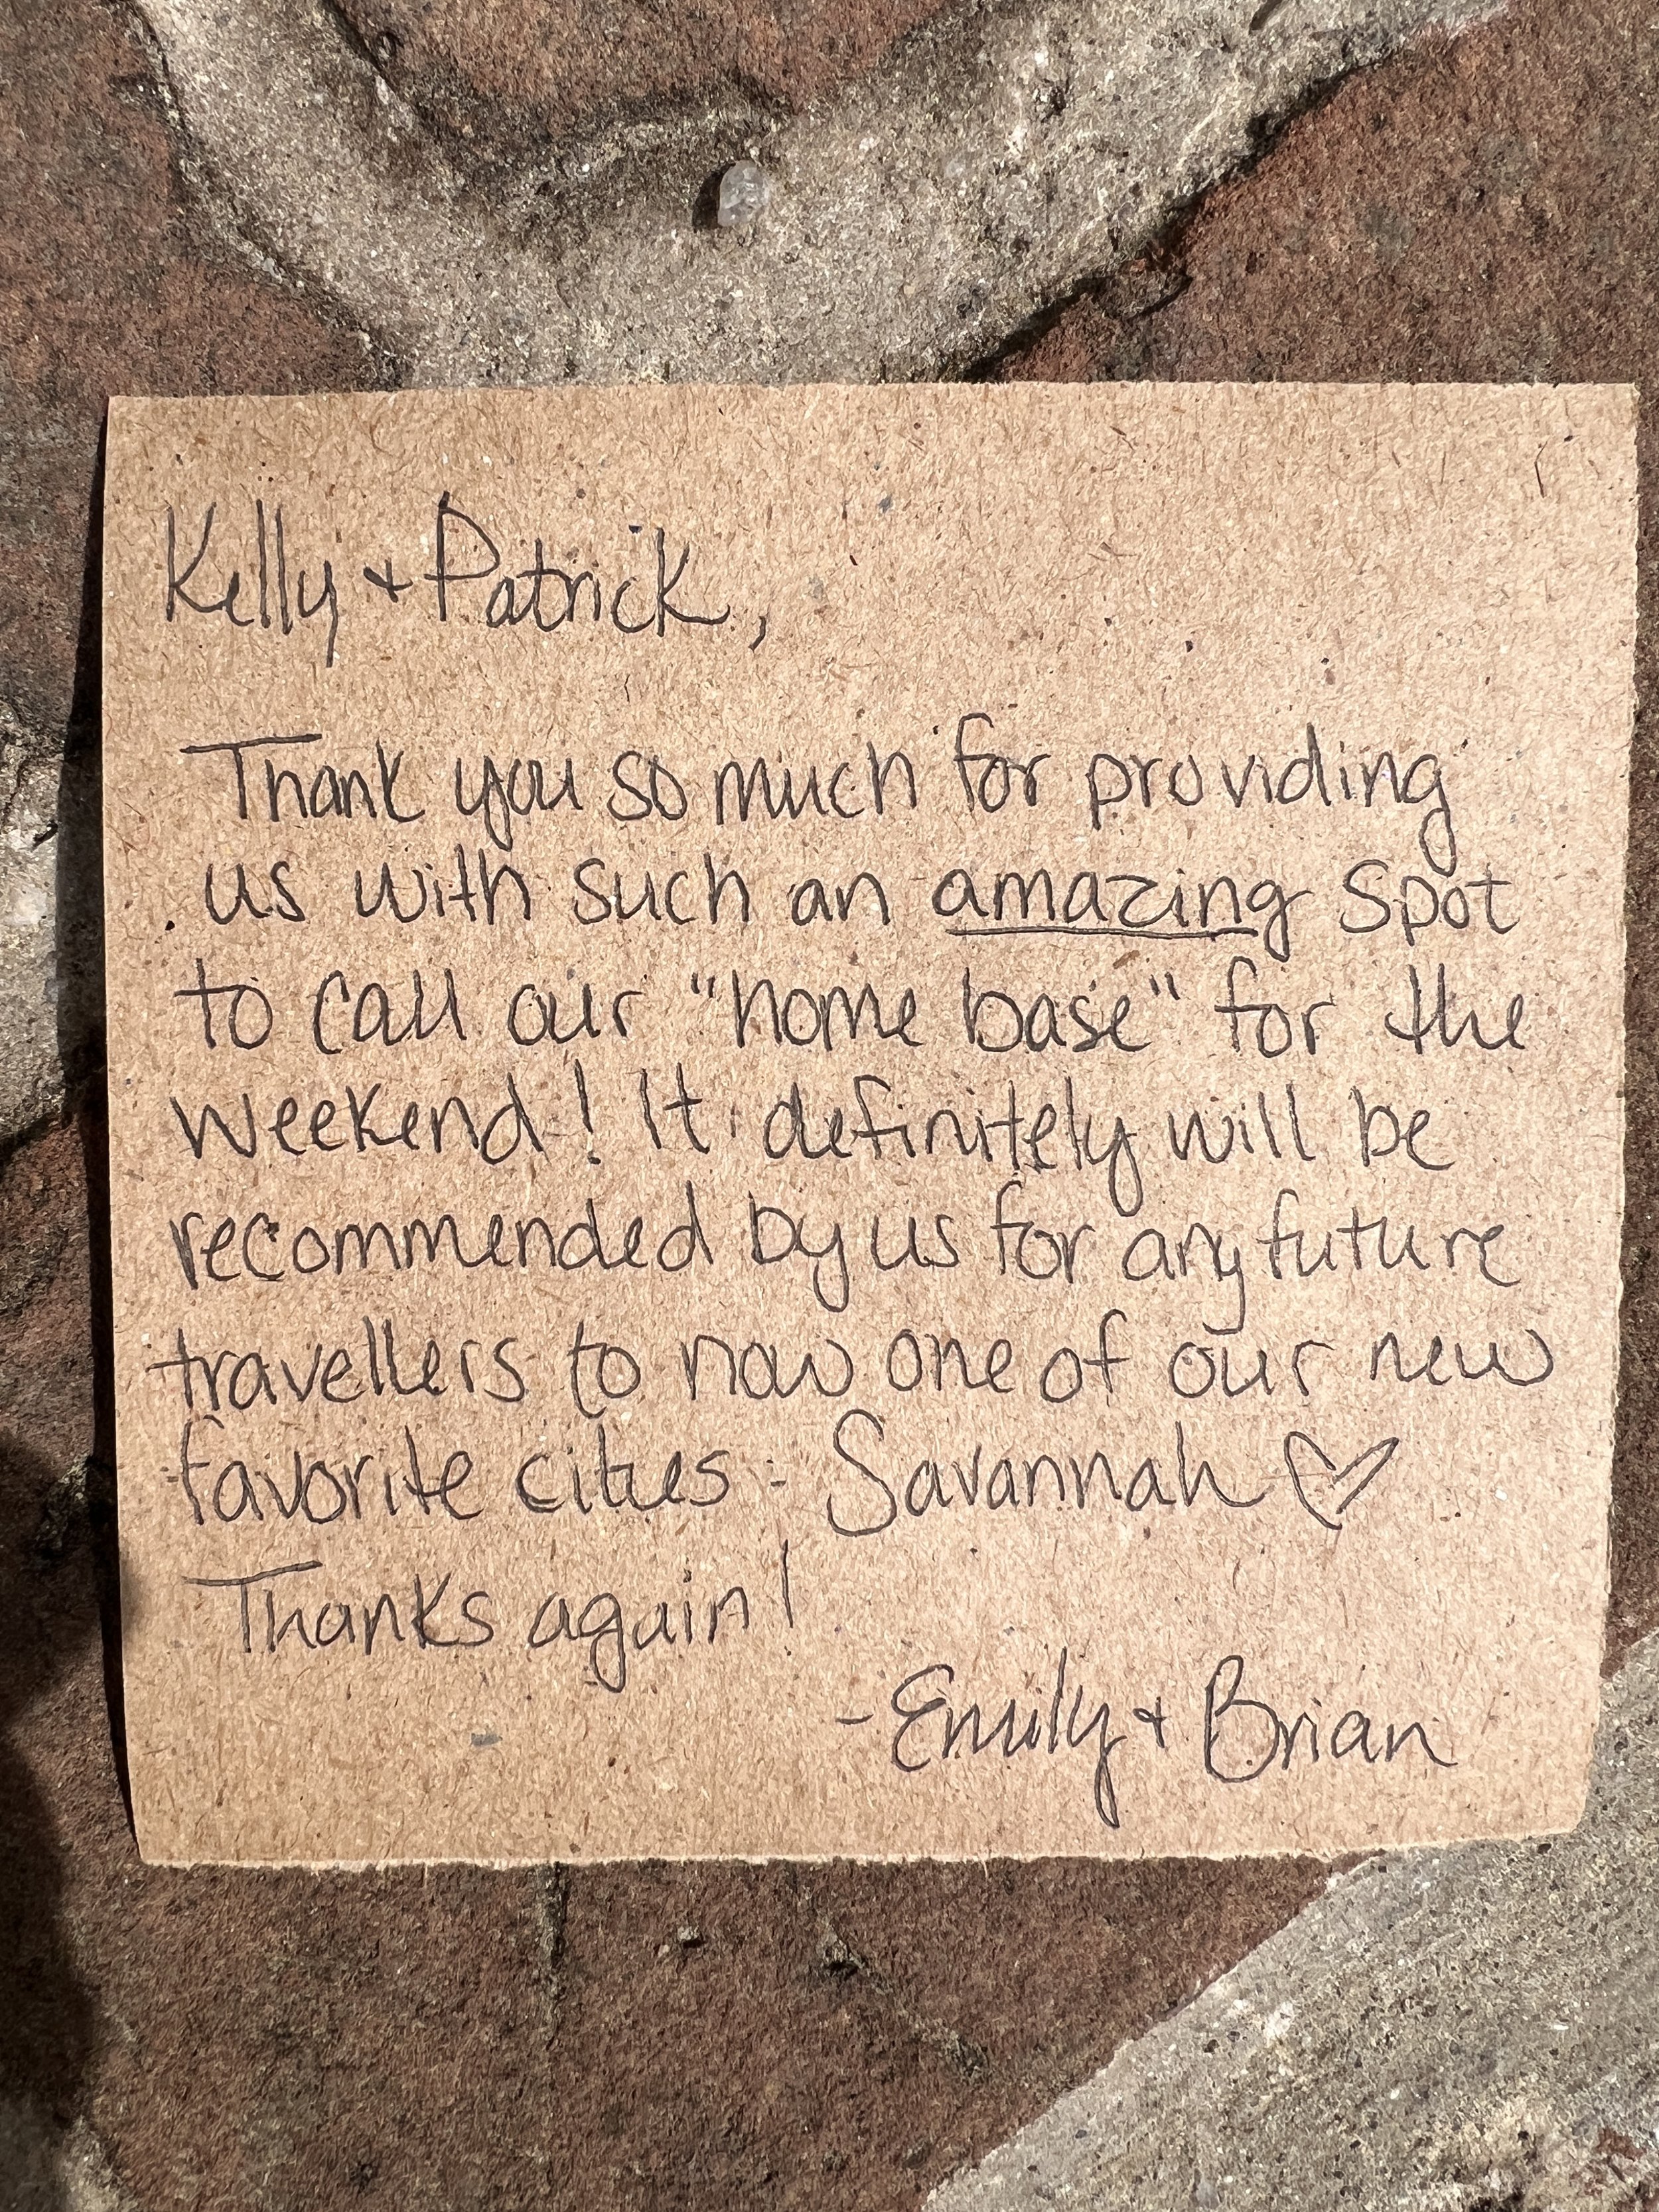 Kelly + Patrick,
Thank you so much for providing
us with such an amazing spot
to call our "home base" for the
weekend! It definitely will be
recommended by us for any future
travellers to now one of our new
favorite cities - Savannah ♡
Thanks again!
- Emily + Brian